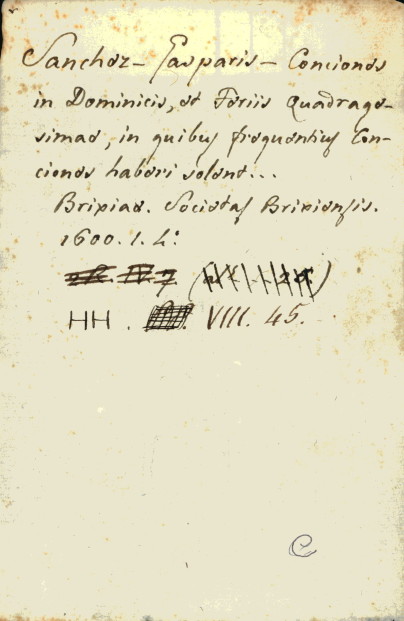 Sanchez - Gasparis - Conciones
in Dominicis, et Feriis Quadrage-
simae, in quibus frequentius Con-
ciones haberi solent...
Brixiae. Societas Brixiensis.
1600. 1. 4º.
HH. VIII. 45.
C